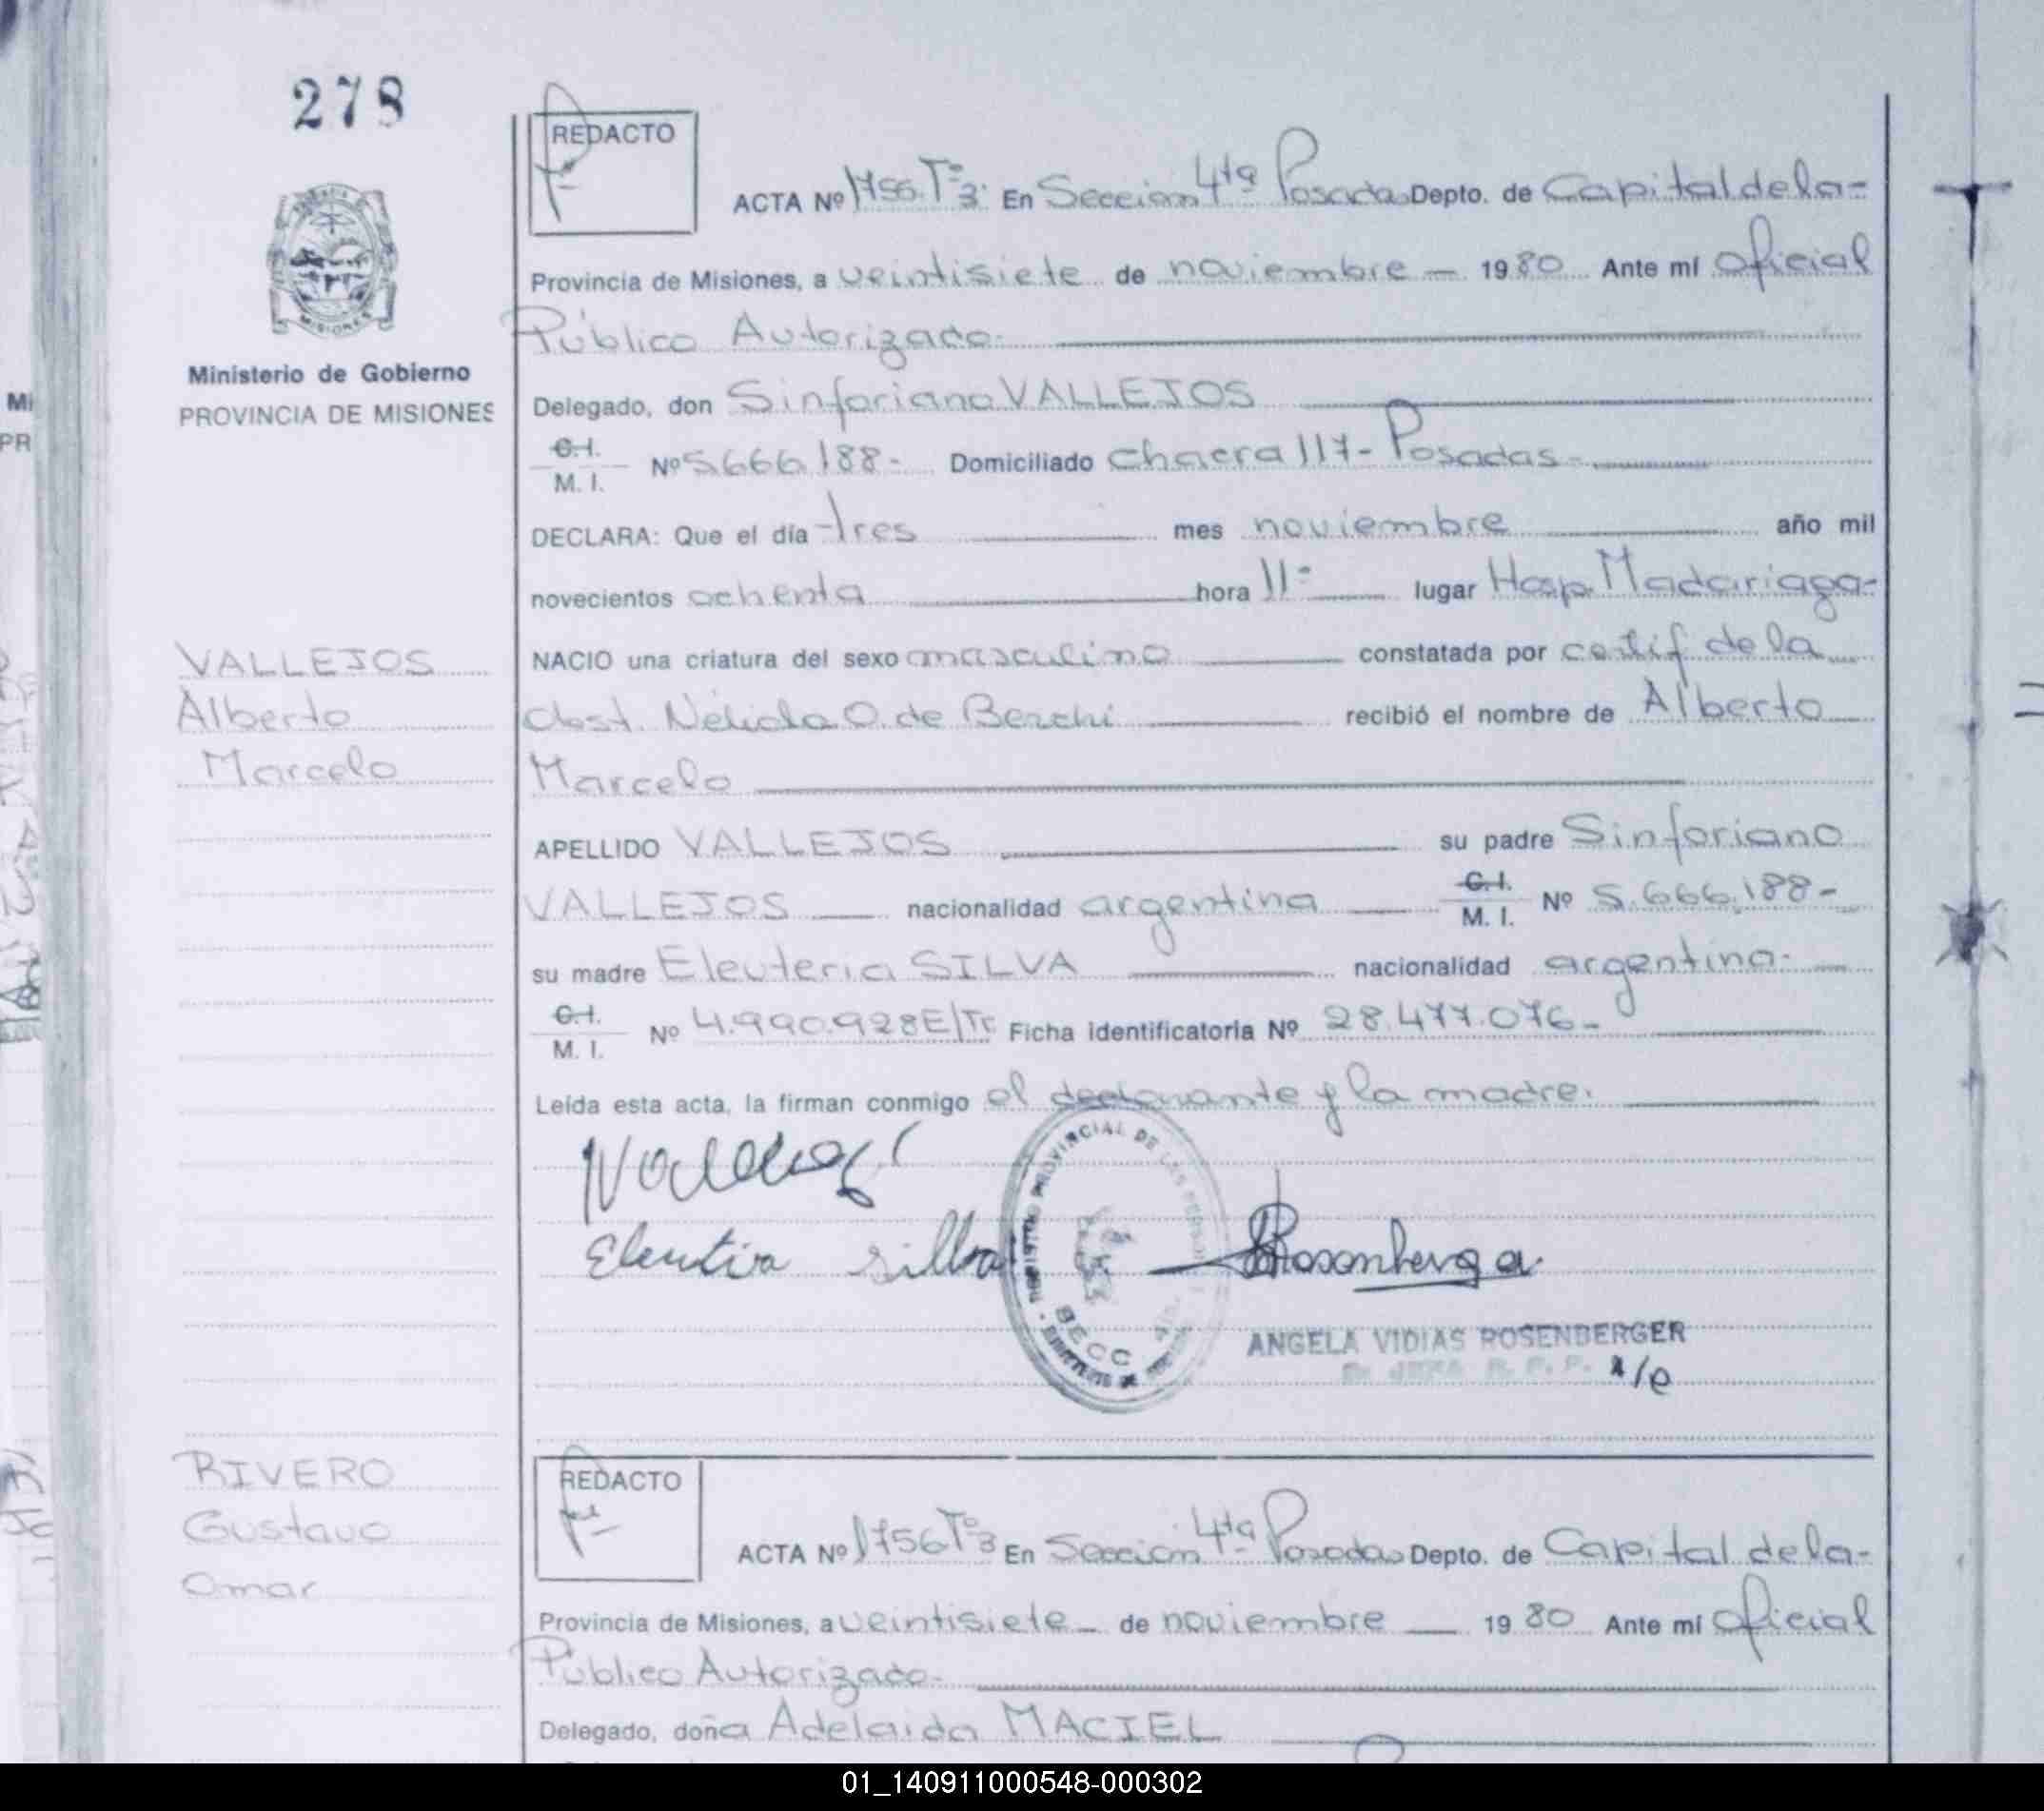 278
REDACTO
ACTA Nº 1756 Tº 3 En Sección 4ta Posadas Depto. de Capital de la-
Provincia de Misiones, a veintisiete de noviembre — 1980 Ante mí Oficial
Público Autorizado.
Ministerio de Gobierno
PROVINCIA DE MISIONES
Delegado, don Sinforiano VALLEJOS
C.I.
M. I. Nº 5.666.188- Domiciliado Chacra 117- Posadas-
DECLARA: Que el día tres mes noviembre año mil
novecientos ochenta hora 11- lugar Hosp. Madariaga-
VALLEJOS
Alberto
Marcelo
NACIO una criatura del sexo masculino constatada por certif de la
obst. Nélida O. de recibió el nombre de Alberto
Marcelo
APELLIDO VALLEJOS su padre Sinforiano
VALLEJOS — nacionalidad argentina C.I.
M. I. Nº 5.666.188-
su madre Eleuteria SILVA nacionalidad argentina.
C.I.
M. I. Nº 4.990.928 E/Tr Ficha identificatoria Nº 28.477.076-
Leída esta acta, la firman conmigo el declarante y la madre.
Eleutira Silba
PROVINCIAL DE LAS
SECC
ANGELA VIDIAS ROSENBERGER
RIVERO
Gustavo
Omar
REDACTO
ACTA Nº 1756 Tº 3 En Sección 4ta Posadas Depto. de Capital de la-
Provincia de Misiones, a veintisiete- de noviembre — 1980 Ante mí Oficial
Público Autorizado-
Delegado, doña Adelaida MACIEL
01_140911000548-000302